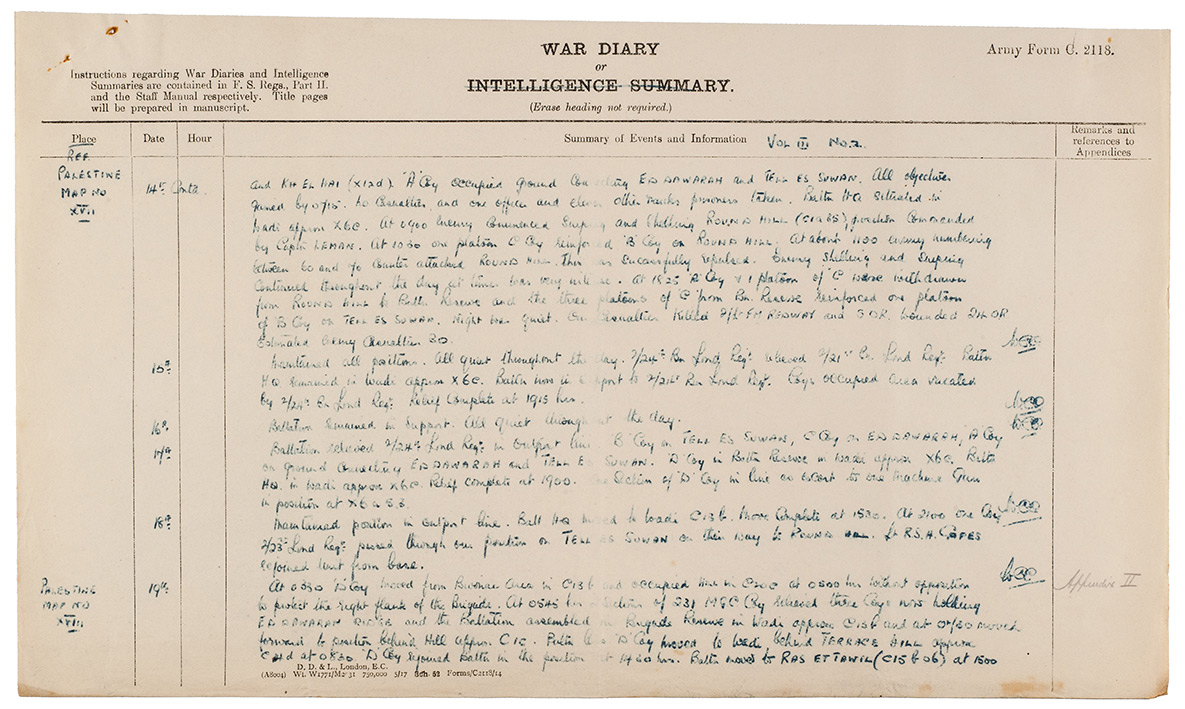 WAR DIARY
or
INTELLIGENCE SUMMARY.
(Erase heading not required.)
Army Form C. 2118.
Instructions regarding War Diaries and Intelligence
Summaries are contained in F. S. Regs., Part II.
and the Staff Manual respectively. Title pages
will be prepared in manuscript.
Place Date Hour Summary of Events and Information VOL III No.2. Remarks and
references to
Appendices
REF.
PALESTINE
MAP NO
XVII
14th Contd. and KH EL HAI (X12d). "A" Coy occupied ground connecting ED DAWARAH and TELL ES SUWAN. All objectives
gained by 0715. No casualties, and one officer and eleven other ranks prisoners taken. Battn H.Q. situated in
wadi approx X6C. At 0900 enemy commenced sniping and shelling ROUND HILL position commanded
by Captn LEMAN. At 1030 one platoon C Coy reinforced "B" Coy on ROUND HILL. At about 1100 enemy numbering
between 60 and 70 counter attacked ROUND HILL. This was successfully repulsed. Enemy shelling and sniping
continued throughout the day, at times was very intense. At 1825 Coy & 1 platoon of "C" were withdrawn
from ROUND HILL to Battn Reserve and the three platoons of "C" from Bn. Reserve reinforced one platoon
of "B" Coy on TELL ES SUWAN. Night was quiet. Our casualties killed 2/Lt F.M. REDWAY and 5 OR, wounded 24 OR
Estimated enemy casualties 20.
15th Maintained all positions. All quiet throughout the day. 2/24th Bn Lond Regt. relieved 2/21st Bn Lond Regt. Battn
HQ remained in wadi approx X6C. Battn now in support to 2/24th Bn Lond Regt. Coys occupied area vacated
by 2/24th Bn Lond Regt. Relief complete at 1915 hrs.
16th Battalion remained in support. All quiet throughout the day.
17th Battalion relieved 2/24th Lond Regt. in outpost line. "B" Coy on TELL ES SUWAN, C Coy on ED DAWARAH, "A" Coy
on ground connecting ED DAWARAH and TELL ES SUWAN. "D" Coy in Battn Reserve in wadi approx X6C. Battn
HQ. in wadi approx X6C. Relief complete at 1900. One Section of "D" Coy in line as escort to one Machine Gun
in position at
18th Maintained position in outpost line. Batt HQ moved to wadi C13b. Move complete at 1530. At 2100 one Coy
2/23rd Lond Regt. passed through our position on TELL ES SUWAN on their way to ROUND HILL. Lt R.S.H. CAPES
rejoined unit from base.
PALESTINE
MAP NO
XVIII
19th At 0330 "D" Coy moved from Bivouac Area in C13b and occupied line in C20C at 0500 hrs without opposition
to protect the right flank of the Brigade. At 0545 hrs Sections of 231 MGC Coy relieved three Coys now holding
ED DAWARAH RIDGE and the Battalion assembled in Brigade Reserve in wadi approx C13b and at 0730 moved
forward to position behind Hill approx. C1C. Battn less "D" Coy moved to wadi behind TERRACE HILL approx
at 0830. "D" Coy rejoined Battn in the position at 1430 hrs. Battn moved to RAS ET TAWIL (C15b06) at 1500
Appendix II
D. D. & L., London, E.C.
(A8004) Wt. W1771/M2·31 750,000 5/17 Sch. 52 Forms/C2118/14